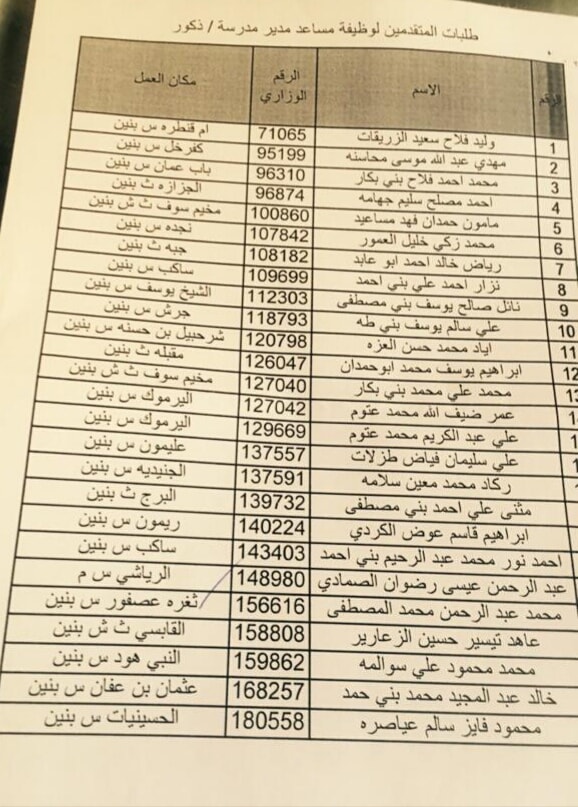 طلبات المتقدمين لوظيفة مساعد مدير مدرسة / ذكور
الرقم الاسم الرقم الوزاري مكان العمل
1 وليد فلاح سعيد الزريقات 71065 ام قنطره س بنين
2 مهدي عبد الله موسى محاسنه 95199 كفرخل س بنين
3 محمد احمد فلاح بني بكار 96310 باب عمان س بنين
4 احمد مصلح سليم جهامه 96874 الجزازه ث بنين
5 مامون حمدان فهد مساعيد 100860 مخيم سوف ث ش بنين
6 محمد زكي خليل العمور 107842 نجده س بنين
7 رياض خالد احمد ابو عابد 108182 جبه ث بنين
8 نزار احمد علي بني احمد 109699 ساكب س بنين
9 نائل صالح يوسف بني مصطفى 112303 الشيخ يوسف س بنين
10 علي سالم يوسف بني طه 118793 جرش س بنين
11 اياد محمد حسن العزه 120798 شرحبيل بن حسنه س بنين
12 ابراهيم يوسف محمد ابوحمدان 126047 مقبله ث بنين
محمد علي محمد بني بكار 127040 مخيم سوف ث ش بنين
عمر ضيف الله محمد عتوم 127042 اليرموك س بنين
علي عبد الكريم محمد عتوم 129669 اليرموك س بنين
علي سليمان فياض طزلات 137557 عليمون س بنين
ركاد محمد معين سلامه 137591 الجنيديه س بنين
مثنى علي احمد بني مصطفى 139732 البرج ث بنين
ابراهيم قاسم عوض الكردي 140224 ريمون س بنين
احمد نور محمد عبد الرحيم بني احمد 143403 ساكب س بنين
عبد الرحمن عيسى رضوان الصمادي 148980 الرياشي س م
محمد عبد الرحمن محمد المصطفى 156616 ثغره عصفور س بنين
عاهد تيسير حسين الزعارير 158808 القابسي ث ش بنين
محمد محمود علي سوالمه 159862 النبي هود س بنين
خالد عبد المجيد محمد بني حمد 168257 عثمان بن عفان س بنين
محمود فايز سالم عياصره 180558 الحسينيات س بنين